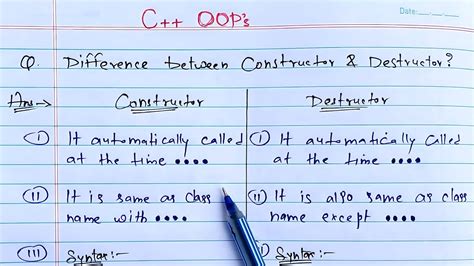 C++ OOP's
Date:
Q. Difference between Constructor & Destructor?
Ans → Constructor
Destructor
(I) It automatically called
at the time ....
(I) It automatically called
at the time ....
(II) It is same as class
name with ....
(II) It is also same as class
name except ....
(III) Syntax:-
Syntax:-